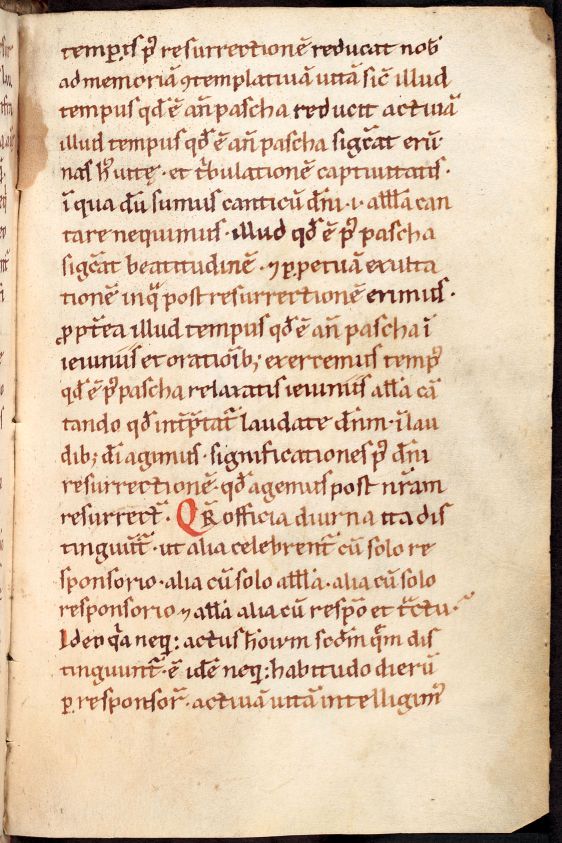 temporis p᷒ resurrectionē reducat nob̄
ad memoriā ⁊templatiuā uitā sic̄ illud
tempus qđ ē an̄ pascha reducit actiuā
illud tempus qđ ē an̄ pascha sigc̄at erū
nas h᷒ uitę · et t̄bulationē captiuitatis ·
ī qua dū sumus canticū dn̄i ·i· all̄a can
tare nequimus · illud qđ ē p᷒ pascha
sigc̄at beatitudinē · ⁊ ꝑpetuā exulta
tionē in q̄ post resurrectionē erimus ·
ꝓpt̄ea illud tempus qđ ē an̄ pascha ī
ieiuniis et oratioīb; exercemus temp᷒
qđ ē p᷒ pascha relaxatis ieiuniis all̄a cā
tando qđ int̄p̄tat̄ laudate dn̄m · ī lau
dib; dī agimus · significationes p᷒ dn̄i
resurrectionē · qđ agemus post nr̄am
resurrect̄ · QR̄ officia diurna ita dis
tinguūt̄ · ut alia celebrent̄ cū solo re
sponsorio · alia cū solo all̄a · alia cū solo
responsorio ⁊ all̄a alia cū respōo et t̄ctu ·
Ideo q̄a neq: actus hoīum scd̄m q̄m dis
tinguunt̄ · ē idē neq: habitudo dierū
ꝑ responsor̄ · actiuā uitā intelligim᷒